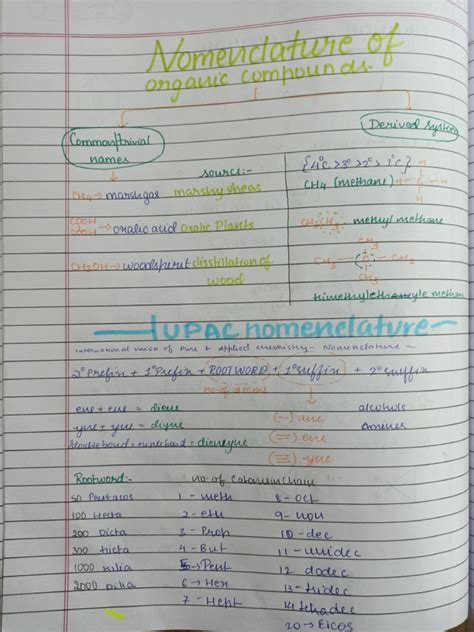 Nomenclature of
organic compounds.
Common/trivial
names
Derived system
source:-
{4°c >3° >2° > 1°c}
CH4 → marshgas marshy areas
CH4 (methane)
H
H-C-H
H
COOH
COOH → oxalic acid Oxalic Plants
CH3CH3 methyl methane
CH3OH → woodspirit distillation of
wood
CH3
CH3 - C - CH3
CH3
IUPAC nomenclature
international union of Pure & Applied chemistry - Nomenclature -
2° Prefix + 1° Prefix + ROOTWORD + 1° suffix + 2° suffix
no. of atoms
ene + ene = diene
(-) ane
alcohols
yne + yne = diyne
(=) ene
Amines
(≡) -yne
Rootword:-
no. of Carbon in chain
50 Pentacos
1 - meth
8 - oct
100 Hecta
2 - eth
9 - non
200 Dicta
3 - Prop
10 - dec
300 tricta
4 - But
11 - undec
1000 Kilia
5 → Pent
12 dodec
2000 Dilia
6 → Hex
13 - tridec
7 - Hept
14 tetradec
20 → Eicos